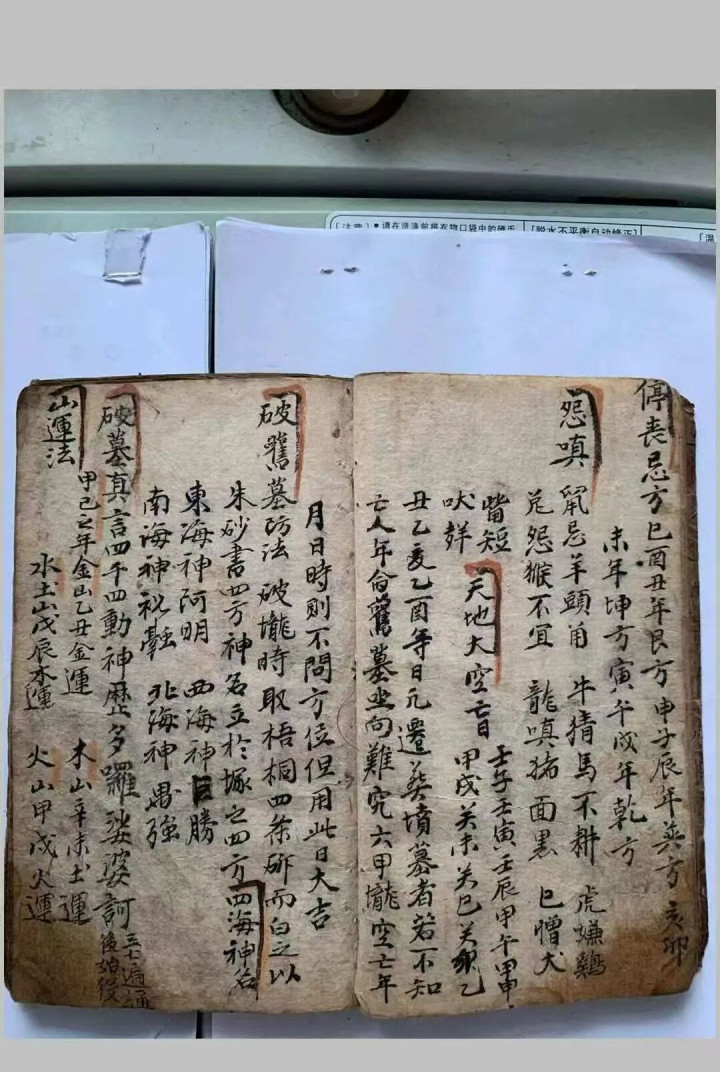 [注意]•请在洗涤前将衣物口袋中的硬币
[脱水不平衡自动修正]
停喪忌方 巳酉丑年艮方 申子辰年巽方 亥卯
未年坤方 寅午戌年乾方
怨嗔 鼠忌羊頭角 牛猜馬不耕 虎嫌鷄
兎怨猴不宜 龍嗔猪面黑 巳憎犬
觜短
吠
天地大空亡日 壬子壬寅壬辰甲午甲申
甲戌关未关巳关卯乙
丑乙亥乙酉等日凡遷葬墳墓者若不知
亡人年命舊墓坐向難究六甲壠空亡年
月日時則不問方位但用此日大吉
破舊墓防法 破壠時取梧桐四条斫而白之以
朱砂書四方神名立於塚之四方 四海神名
東海神阿明 西海神巨勝
南海神祝融 北海神禺强
破墓真言四千四動神歷多囉娑婆訶
山運法 甲己之年金山乙丑金運 木山辛未土運
水土山戊辰木運 火山甲戌火運